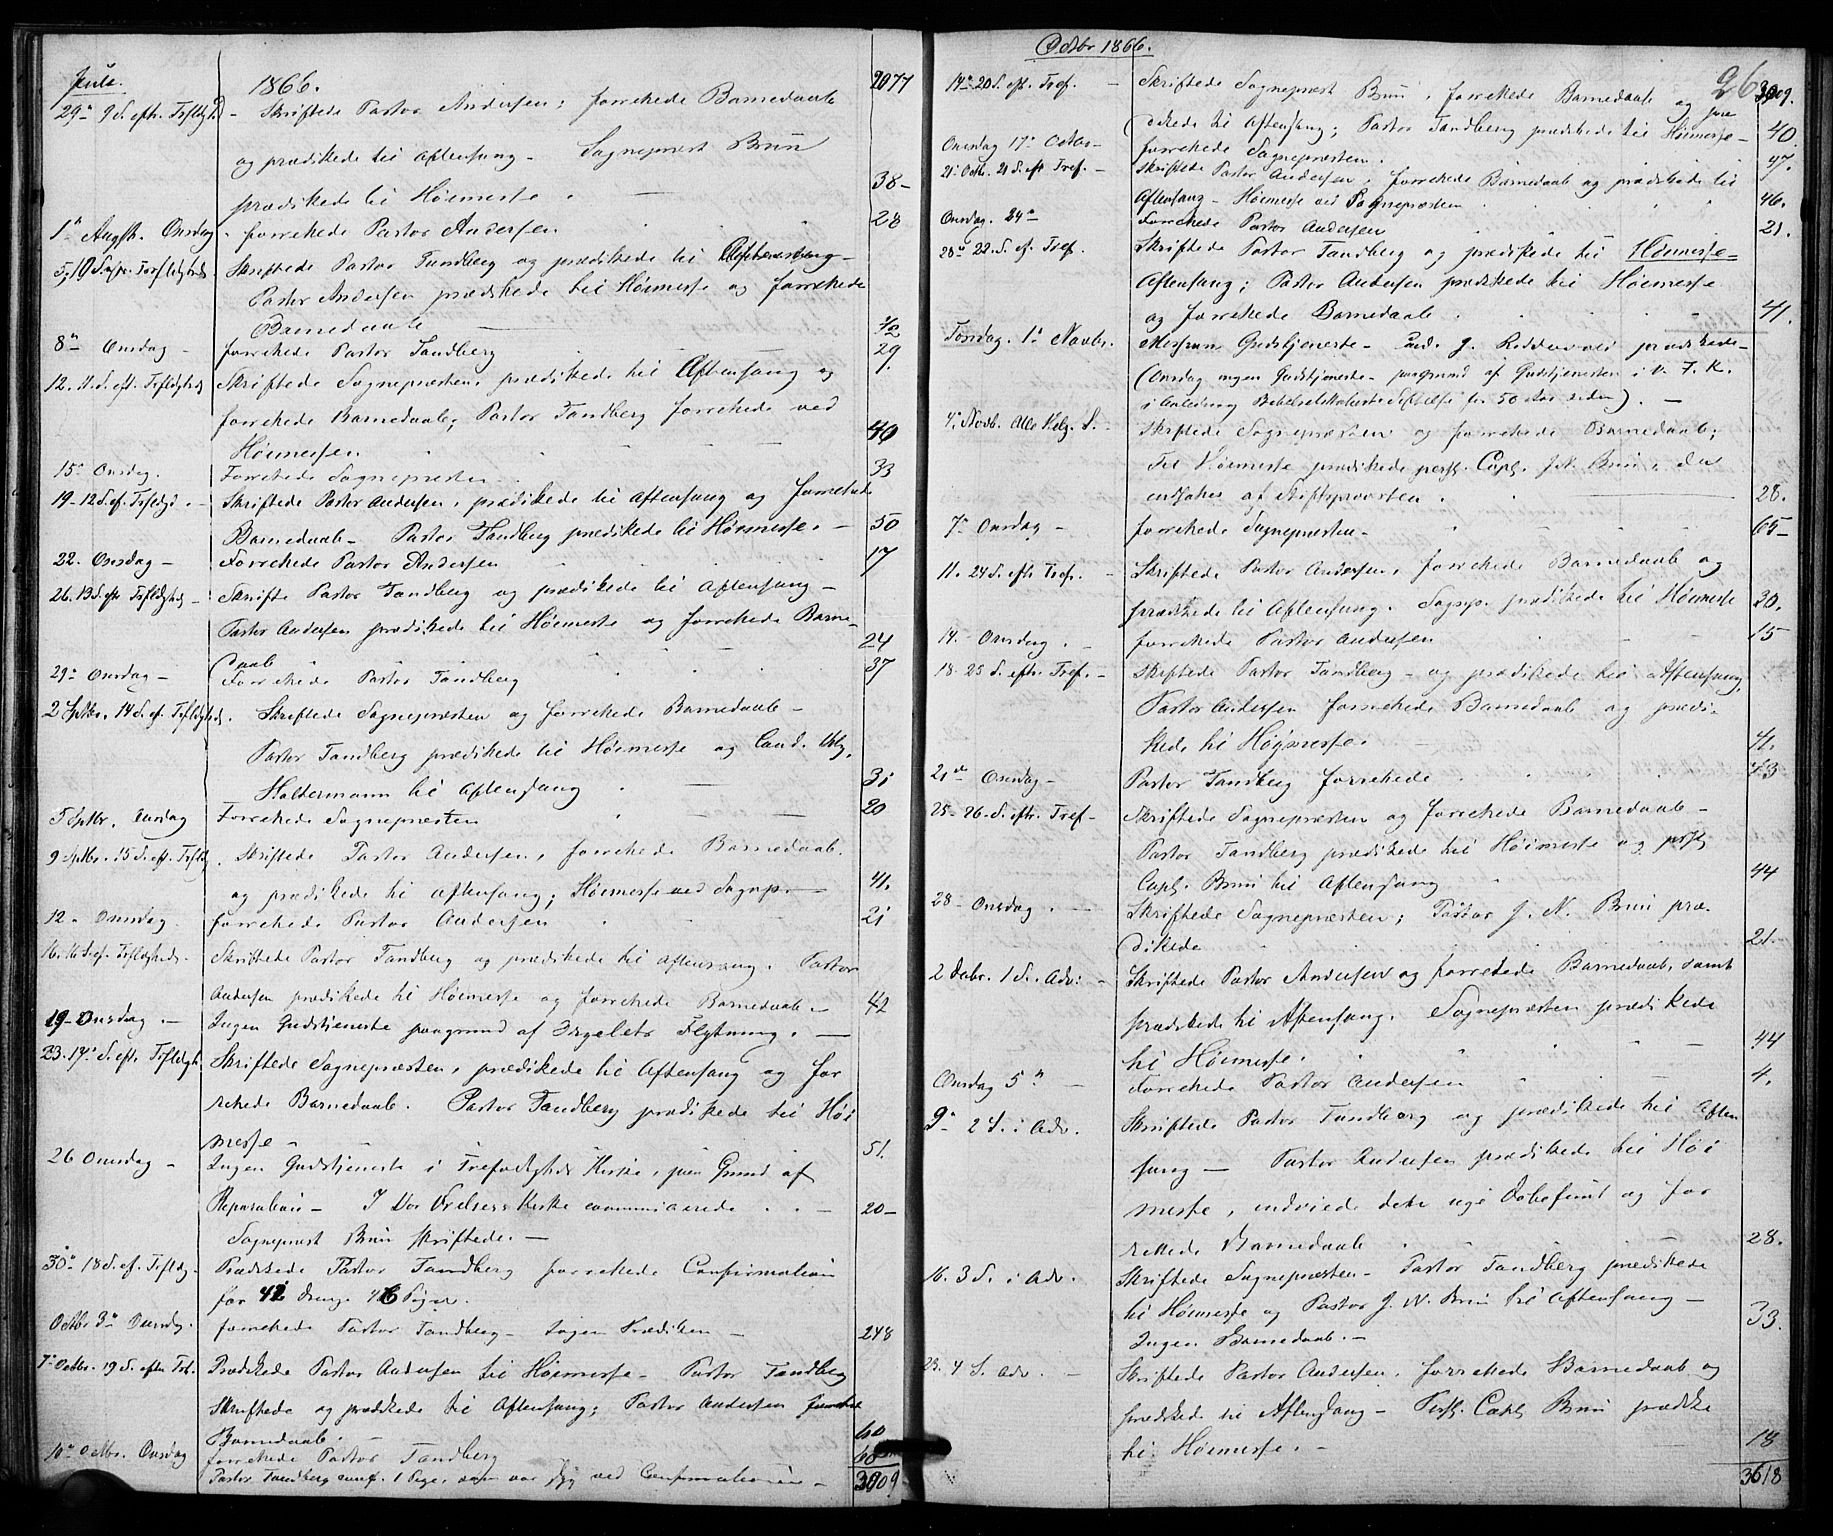 Julii. 1866. 2077
29de 9 S. eftr. Trfldgh. - Skriftede Pastor Andersen, forrettede Barnedaab
og prædikede til Aftensang - Sognepræst Bruun
prædikede til Høimesse 38-
1ste Augst. Onsdag. forrettede Pastor Andersen 28
5, 10 S. eft. Trefldgheds Skriftede Pastor Tandberg og prædikede til Aftensang -
Pastor Andersen prædikede til Høimesse og forrettede
Barnedaab 42
8de Onsdag - forrettede Pastor Tandberg 29.
12. 11. S. eft. Trfldgheds Skriftede Sognepræsten, prædikede til Aftensang og
forrettede Barnedaab; Pastor Tandberg forrettede ved
Høimessen 40
15de Onsdag. Forrettede Sognepræsten 33
19 - 12 S. ef. Trfldgh. - Skriftede Pastor Andersen, prædikede til Aftensang og forrettede
Barnedaab - Pastor Tandberg prædikede til Høimesse. - 50
22. Onsdag - Forrettede Pastor Andersen 17
26. 13 S. eft Trfldghds - Skrifte Pastor Tandberg og prædikede til Aftensang -
Pastor Andersen prædikede til Høimesse og forrettede Barne-
daab 24
29de Onsdag - Forrettede Pastor Tandberg 37
2 Septbr. 14 S. ef. Trfldgheds. Skriftede Sognepræsten og forrettede Barnedaab -
Pastor Tandberg prædikede til Høimesse og Cand.
Haltermann til Aftensang 31
5 Septbr. Onsdag Forrettede Sognepræsten 20
9 Septbr. 15 S. eft. Trfldg. Skriftede Pastor Andersen, forrettede Barnedaab
og prædikede til Aftensang; Høimesse ved Sognepr. 41.
12 - Onsdag. forrettede Pastor Andersen 21
16. 16 S. ef. Trfldgheds. Skriftede Pastor Tandberg og prædikede til Aftensang. Pastor
Andersen prædikede til Høimesse og forrettede Barnedaab - 42
19 - Onsdag. - Ingen Gudstjeneste paagrund af Orgelets Flytning. -
23. 17de S. eftr. Trfldgh. Skriftede Sognepræsten, prædikede til Aftensang og for
rettede Barnedaab. Pastor Tandberg prædikede til Høi
messe 51.
26 Onsdag - Ingen Gudstjeneste i Trefoldigheds Kirke, paa Grund af
Reparation - I Vor Frelsers Kirke communicerede - 20-
Sognepræst Bruun skriftede. -
30te 18 S. ef. Trfldg. Prædikede Pastor Tandberg forrettede Confirmation
for 42 Drenge 46 Piger.
Octbr 3de Onsdag. forrettede Pastor Tandberg - Ingen Prædiken - 248
7de Octbr. 19 S. efter Tref. Prædikede Pastor Andersen til Høimesse - Pastor Tandberg
Skriftede og prædikede til Aftensang; Pastor Andersen forrettede
Barnedaab. - 60
10de Octbr. Onsdag forrettede Pastor Tandberg 68
Pastor Tandberg conf. 1 Pige, som var syg ved Confirmationen - 3009
Octbr 1866. 26
14de 20 S. eft. Tref. - Skriftede Sognepræst Bruun, forrettede Barnedaab og præ 3009.
dikede til Aftensang; Pastor Tandberg prædikede til Høimesse - 40.
Onsdag 17de Octbr - forrettede Sognepræsten. 47.
21de Octbr. 21 S. eft Tref. - Skriftede Pastor Andersen, forrettede Barnedaab og prædikede til
Aftensang - Høimesse ved Sognepræsten 46.
Onsdag. 24de Forrettede Pastor Andersen 21.
28de 22. S. ef. Tref. Skriftede Pastor Tandberg og prædikede til Høimesse -
Aftensang; Pastor Andersen prædikede til Høimesse
og forrettede Barnedaab 41.
Torsdag. 1ste Novbr. Gudstjeneste - Cand. J. prædikede -
(Onsdag ingen Gudstjeneste - paagrund af Gudstjenesten i V. F. K.
i Anledning Bibelselskabets Stiftelse for 50 Aar siden). -
4de Novb. Alle Helg. S. - Skriftede Sognepræsten og forrettede Barnedaab;
Til Høimesse prædikede pers. Capl. J. N. Bruun, der
indsattes af Stiftsprovsten. 28.
7de Onsdag - forrettede Sognepræsten - 65-
11. 24 S. eftr Tref. - Skriftede Pastor Andersen, forrettede Barnedaab og
prædikede til Aftensang. Sognepr. prædikede til Høimesse 30.
14. Onsdag. - forrettede Pastor Andersen 15
18. 25 S. eftr. Tref. - Skriftede Pastor Tandberg - og prædikede til Aftensang,
Pastor Andersen forrettede Barnedaab og prædi-
kede til Høimesse. 41.
21de Onsdag - Pastor Tandberg forrettede 43
25 - 26 - S. eftr. Tref - Skriftede Sognepræsten og forrettede Barnedaab -
Pastor Tandberg prædikede til Høimesse og pers.
Capl. Bruun til Aftensang 44
28 - Onsdag. - Skriftede Sognepræsten; Pastor J. N. Bruun præ-
dikede 21.
2 Debr. 1 S. i Adv: - Skriftede Pastor Andersen og forrettede Barnedaab, samt
prædikede til Aftensang. Sognepræsten prædikede
til Høimesse. 44
Onsdag 5te - Forrettede Pastor Andersen 4.
9de 2 S. i Adv. Skriftede Pastor Tandberg og prædikede til Aften
sang - Pastor Andersen prædikede til Høi
messe, indviede dets nye Døbefunt og for
rettede Barnedaab 28.
16. 3 S. i Adv. Skriftede Sognepræsten - Pastor Tandberg prædikede
til Høimesse og Pastor J. N. Bruun til Aftensang -
Ingen Barnedaab. - 33.
23. 4 S. Adv. - Skriftede Pastor Andersen, forrettede Barnedaab og
prædikede til Aftensang - Pers. Capl Bruun prædike
til Høimesse. - 18
3618